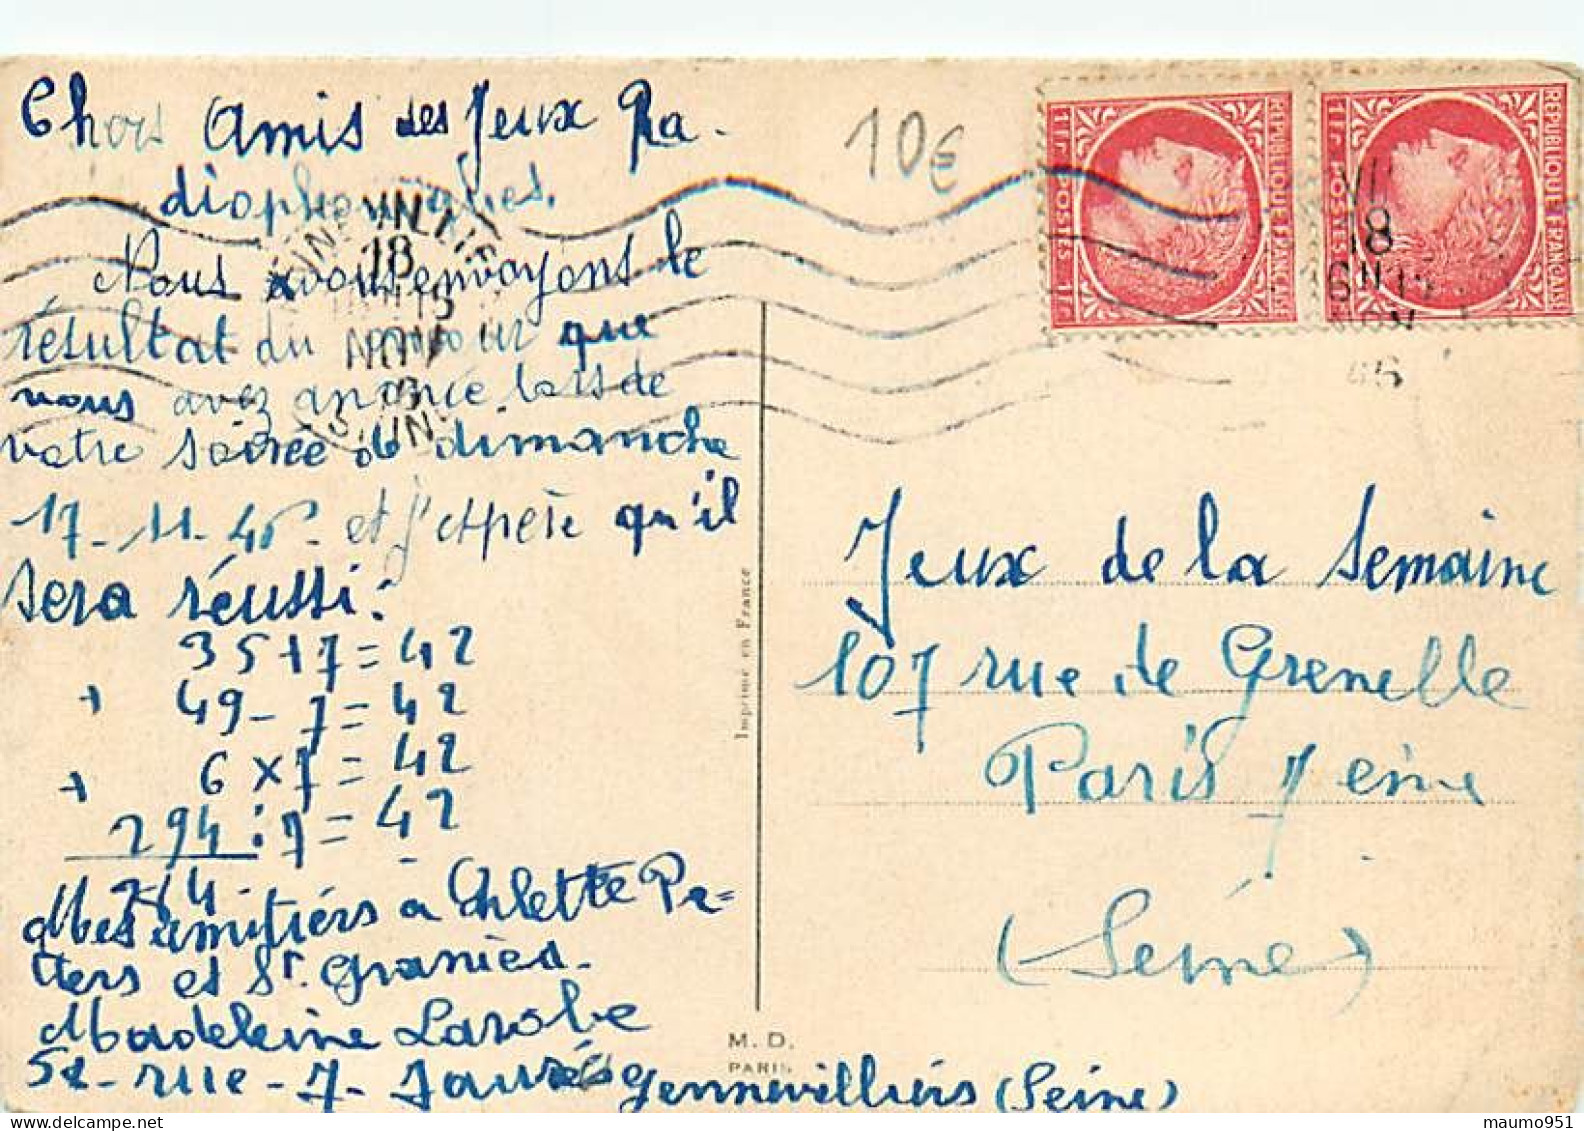 Chers Amis des Jeux Ra-
diophoniques.
Nous vous envoyons le
résultat du que
vous avez anoncé lors de
votre soirée de dimanche
17-11-46 et j'espère qu'il
sera réussi:
35+7=42
+ 49-7=42
+ 6x7=42
294:7=42
384
Mes amitiérs a Arlette Pe=
tters et St. Granied.
Madeleine Larobe
52-rue-J-Jaurès Gennevilliérs (Seine)
10€
RÉPUBLIQUE FRANÇAISE
1Fr POSTES 1Fr
RÉPUBLIQUE FRANÇAISE
1Fr POSTES 1Fr
18
18
16H15
NOV
46
Jeux de la Semaine
107 rue de Grenelle
Paris 7 eme
(Séine)
Imprimé en France
M. D.
PARIS
maumo951